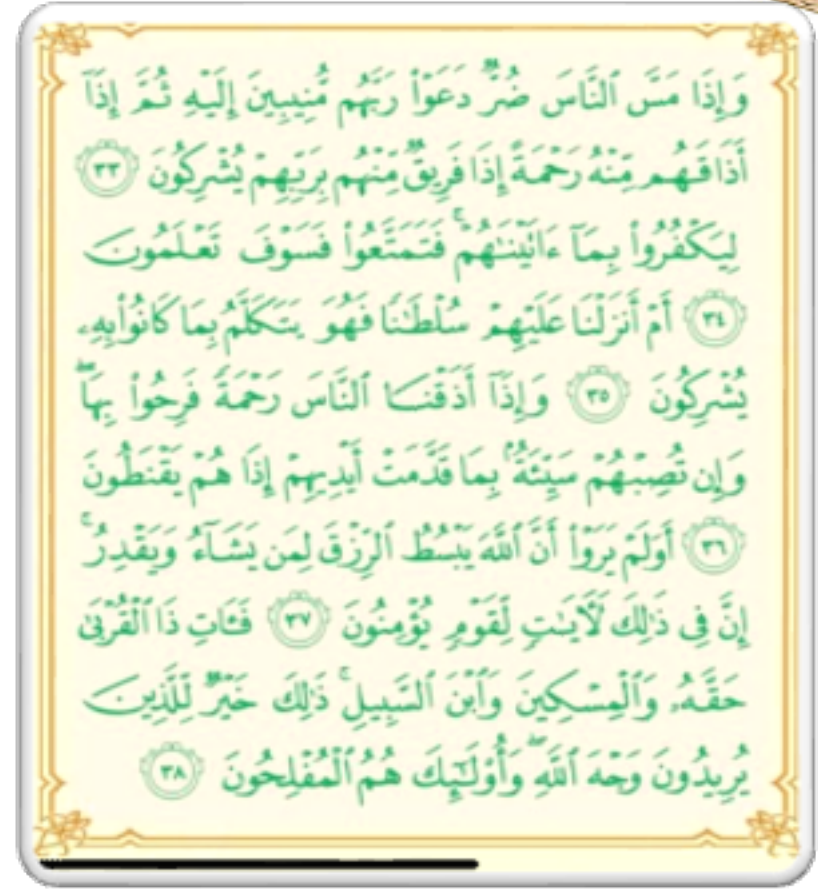 وَإِذَا مَسَّ ٱلنَّاسَ ضُرٌّ دَعَوْا۟ رَبَّهُم مُّنِيبِينَ إِلَيْهِ ثُمَّ إِذَآ
أَذَاقَهُم مِّنْهُ رَحْمَةً إِذَا فَرِيقٌ مِّنْهُم بِرَبِّهِمْ يُشْرِكُونَ ٣٣
لِيَكْفُرُوا۟ بِمَآ ءَاتَيْنَـٰهُمْ ۚ فَتَمَتَّعُوا۟ فَسَوْفَ تَعْلَمُونَ
٣٤ أَمْ أَنزَلْنَا عَلَيْهِمْ سُلْطَـٰنًا فَهُوَ يَتَكَلَّمُ بِمَا كَانُوا۟ بِهِۦ
يُشْرِكُونَ ٣٥ وَإِذَآ أَذَقْنَا ٱلنَّاسَ رَحْمَةً فَرِحُوا۟ بِهَا ۖ
وَإِن تُصِبْهُمْ سَيِّئَةٌۢ بِمَا قَدَّمَتْ أَيْدِيهِمْ إِذَا هُمْ يَقْنَطُونَ
٣٦ أَوَلَمْ يَرَوْا۟ أَنَّ ٱللَّهَ يَبْسُطُ ٱلرِّزْقَ لِمَن يَشَآءُ وَيَقْدِرُ ۚ
إِنَّ فِى ذَٰلِكَ لَـَٔايَـٰتٍ لِّقَوْمٍ يُؤْمِنُونَ ٣٧ فَـَٔاتِ ذَا ٱلْقُرْبَىٰ
حَقَّهُۥ وَٱلْمِسْكِينَ وَٱبْنَ ٱلسَّبِيلِ ۚ ذَٰلِكَ خَيْرٌ لِّلَّذِينَ
يُرِيدُونَ وَجْهَ ٱللَّهِ ۖ وَأُو۟لَـٰٓئِكَ هُمُ ٱلْمُفْلِحُونَ ٣٨